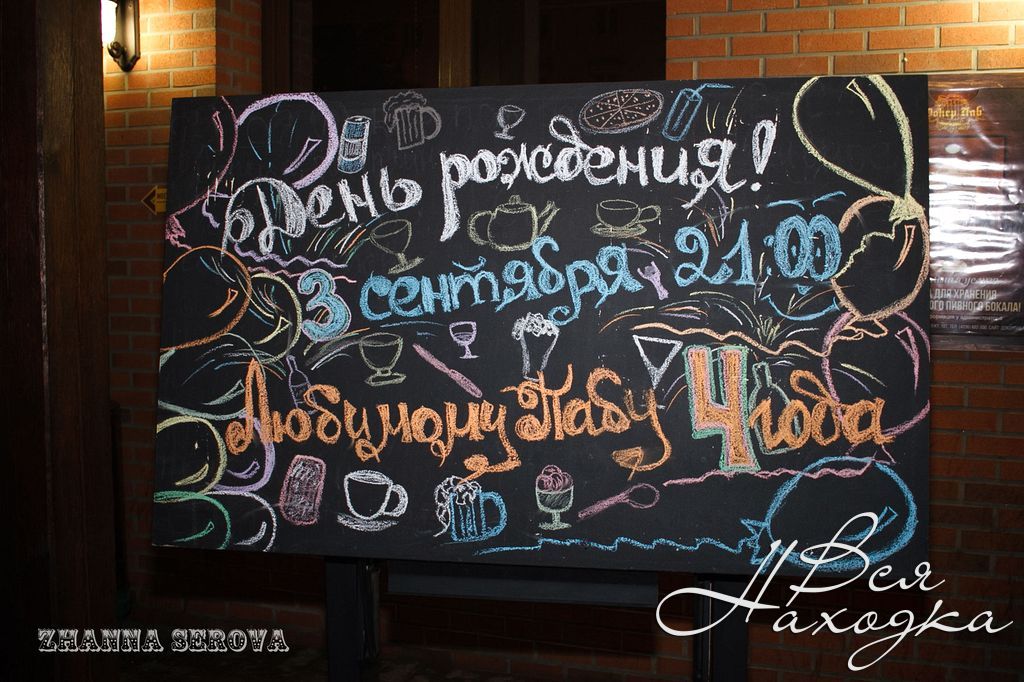 День рождения!
3 сентября 21:00
Любимому Пабу 4 года
ДЛЯ ХРАНЕНИЯ
ПИВНОГО БОКАЛА!
Вся
Находка
ZHANNA SEROVA